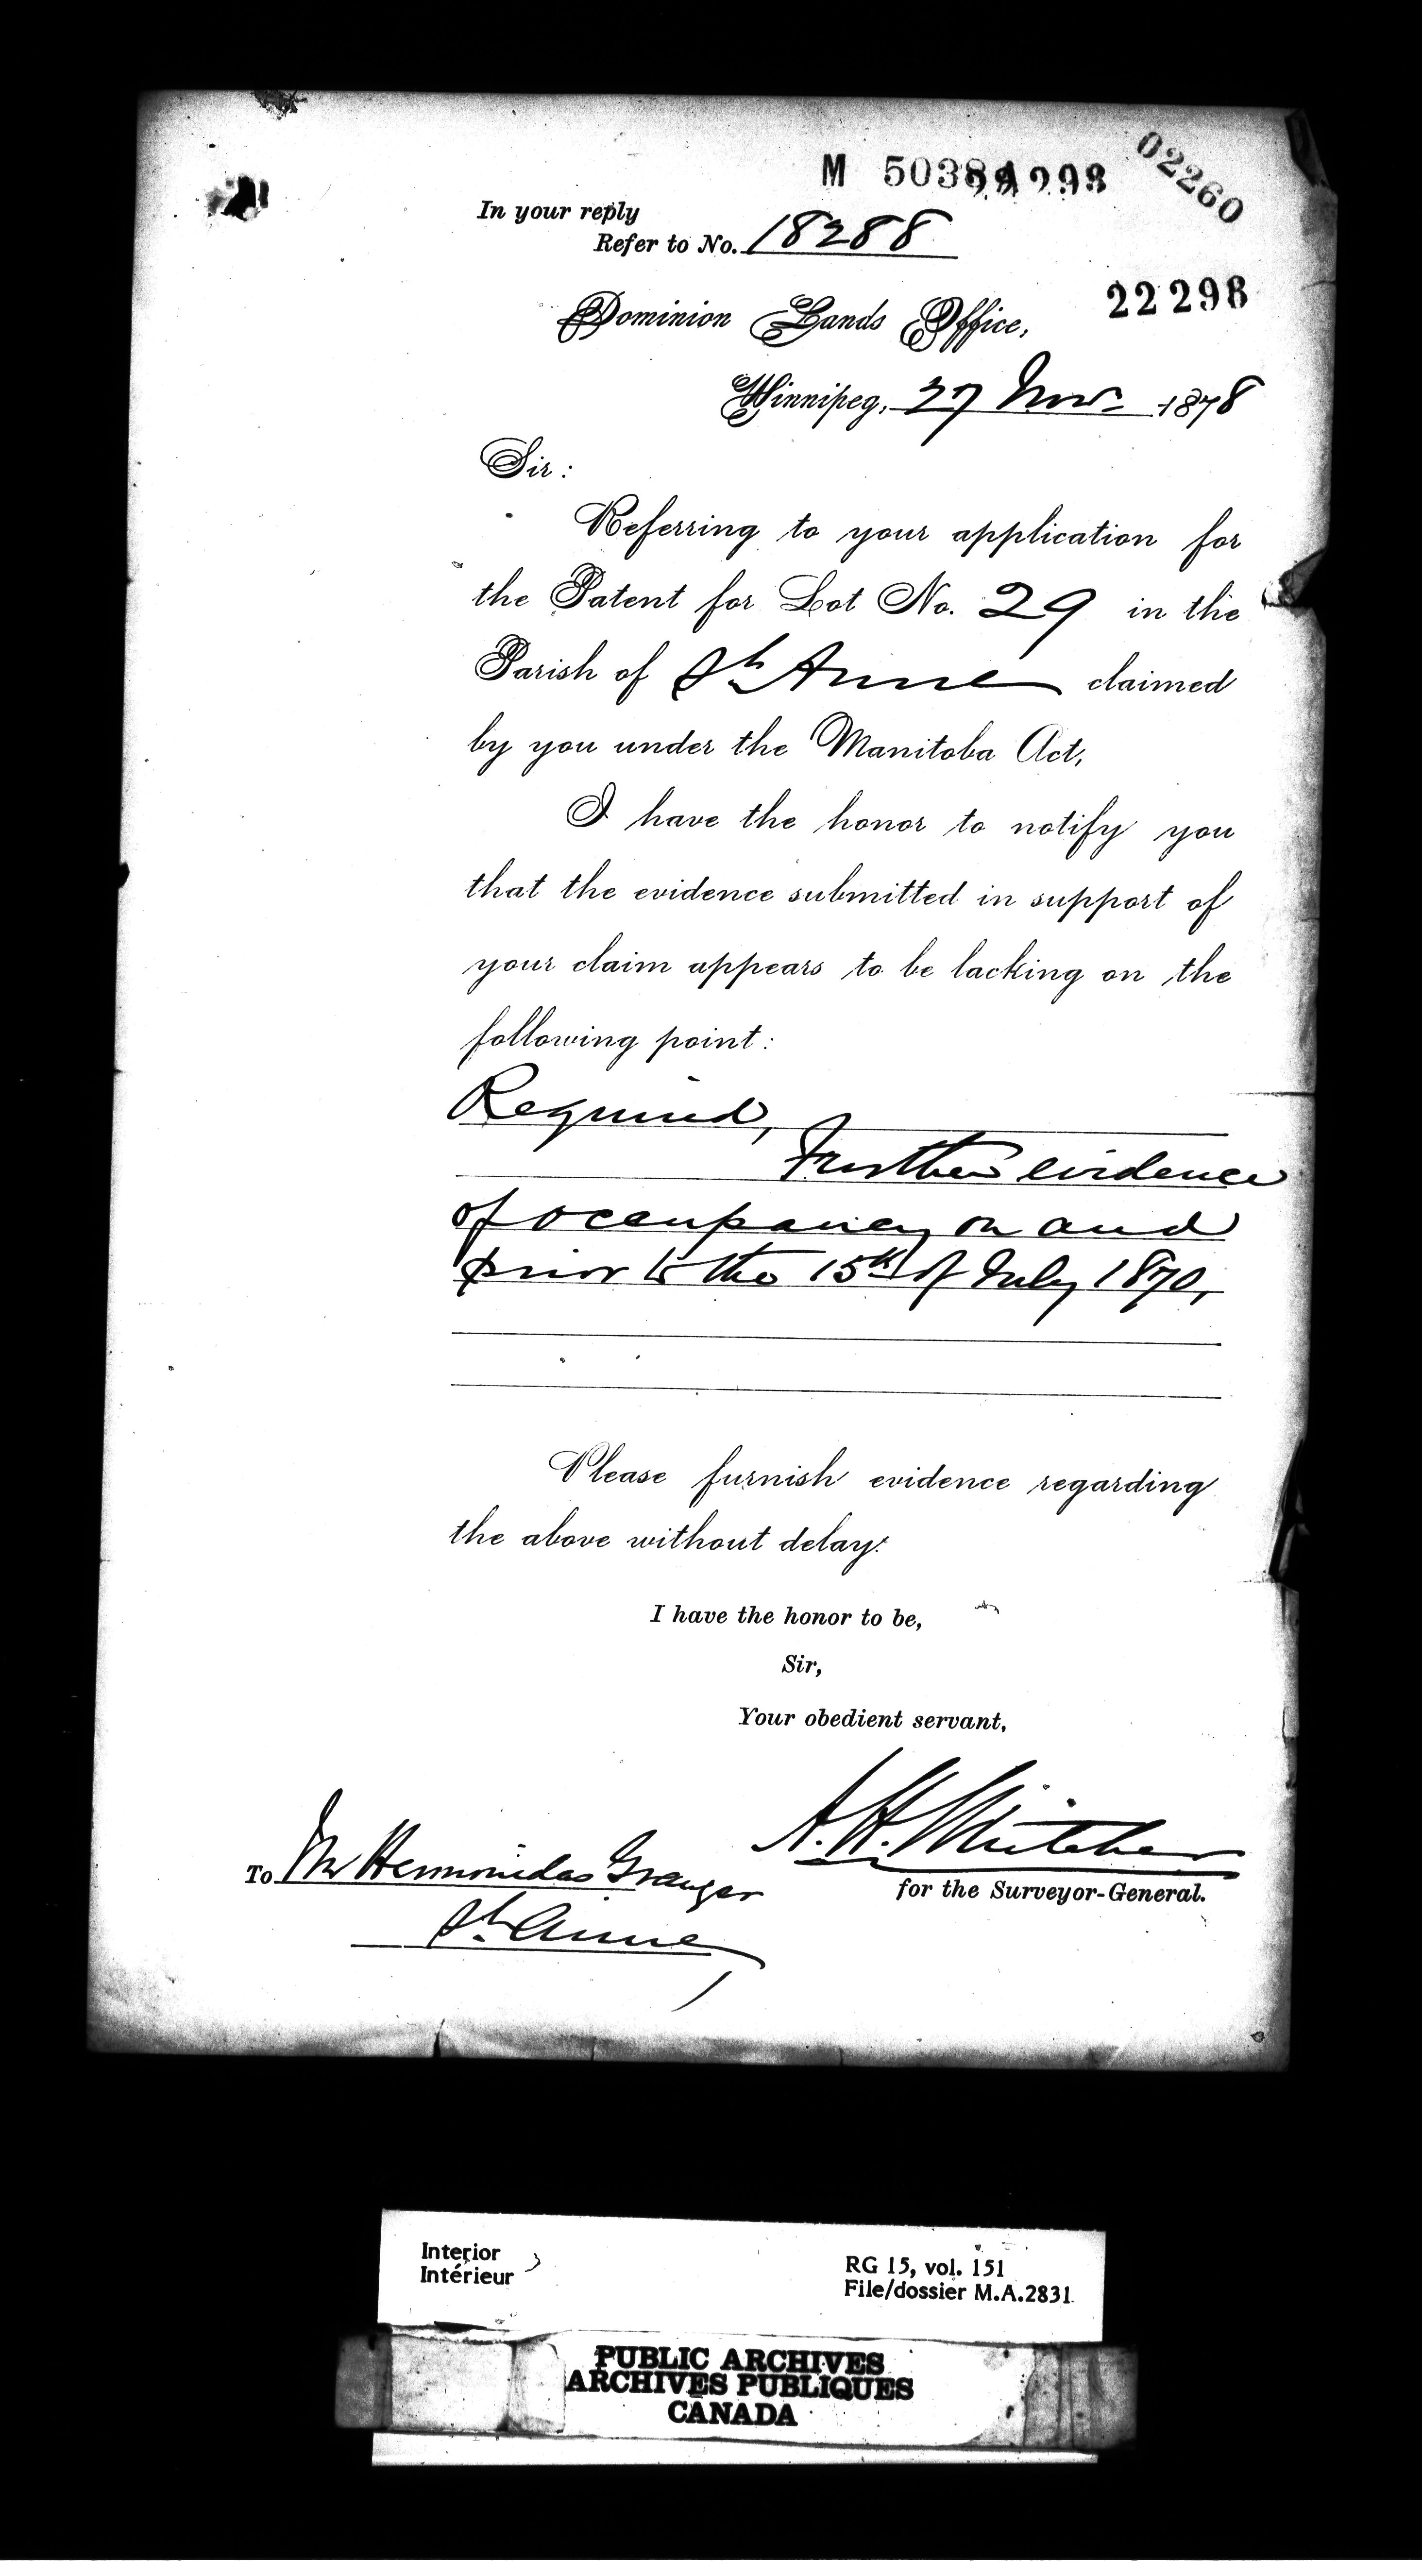 02260
M 5038
In your reply
Refer to No. 18288
22298
Dominion Lands Office,
Winnipeg, 27 Nov. 1878
Sir:
Referring to your application for
the Patent for Lot No. 29 in the
Parish of St. Anne claimed
by you under the Manitoba Act,
I have the honor to notify you
that the evidence submitted in support of
your claim appears to be lacking on the
following point:
Required,
Further evidence
of occupancy on and
prior to the 15th of July 1870,
Please furnish evidence regarding
the above without delay.
I have the honor to be,
Sir,
Your obedient servant,
A. H. Whitcher
for the Surveyor-General.
To Mr Hermenidas Granger
St. Anne
Interior
Intérieur
RG 15, vol. 151
File/dossier M.A.2831
PUBLIC ARCHIVES
ARCHIVES PUBLIQUES
CANADA